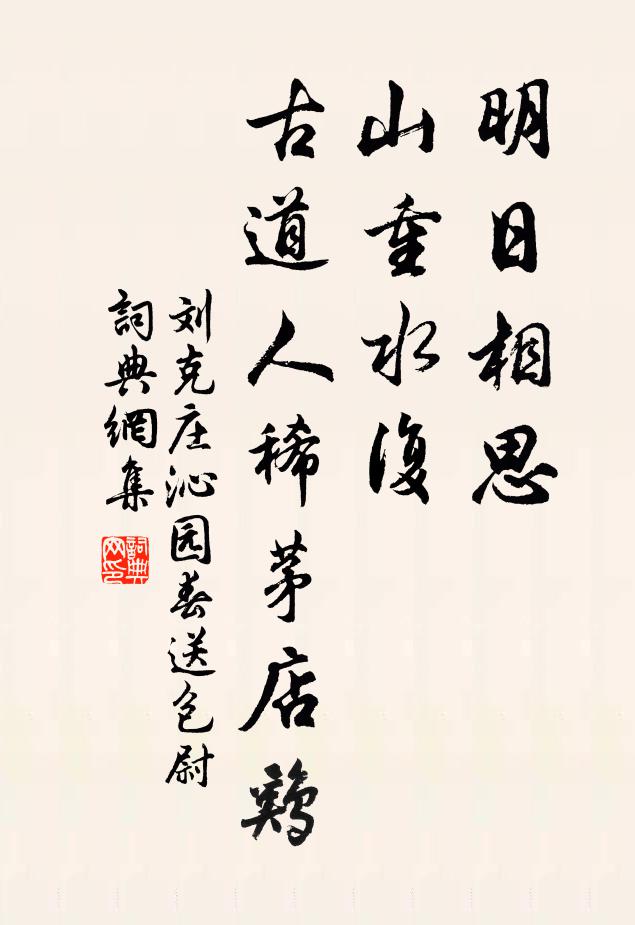 明日相思
山重水復
古道人稀茅店鷄
刘克庄沁园春送包尉
詞典網集
詞典网印